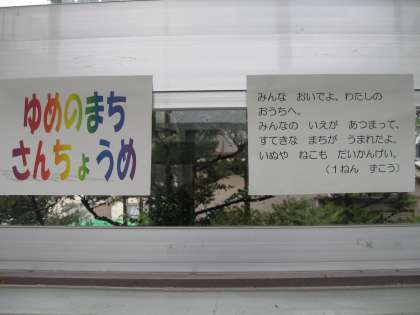 ゆめのまち
さんちょうめ
みんな　おいでよ、わたしの
おうちへ。
みんなの　いえが　あつまって、
すてきな　まちが　うまれたよ。
いぬや　ねこも　だいかんげい。
（１ねん　ずこう）